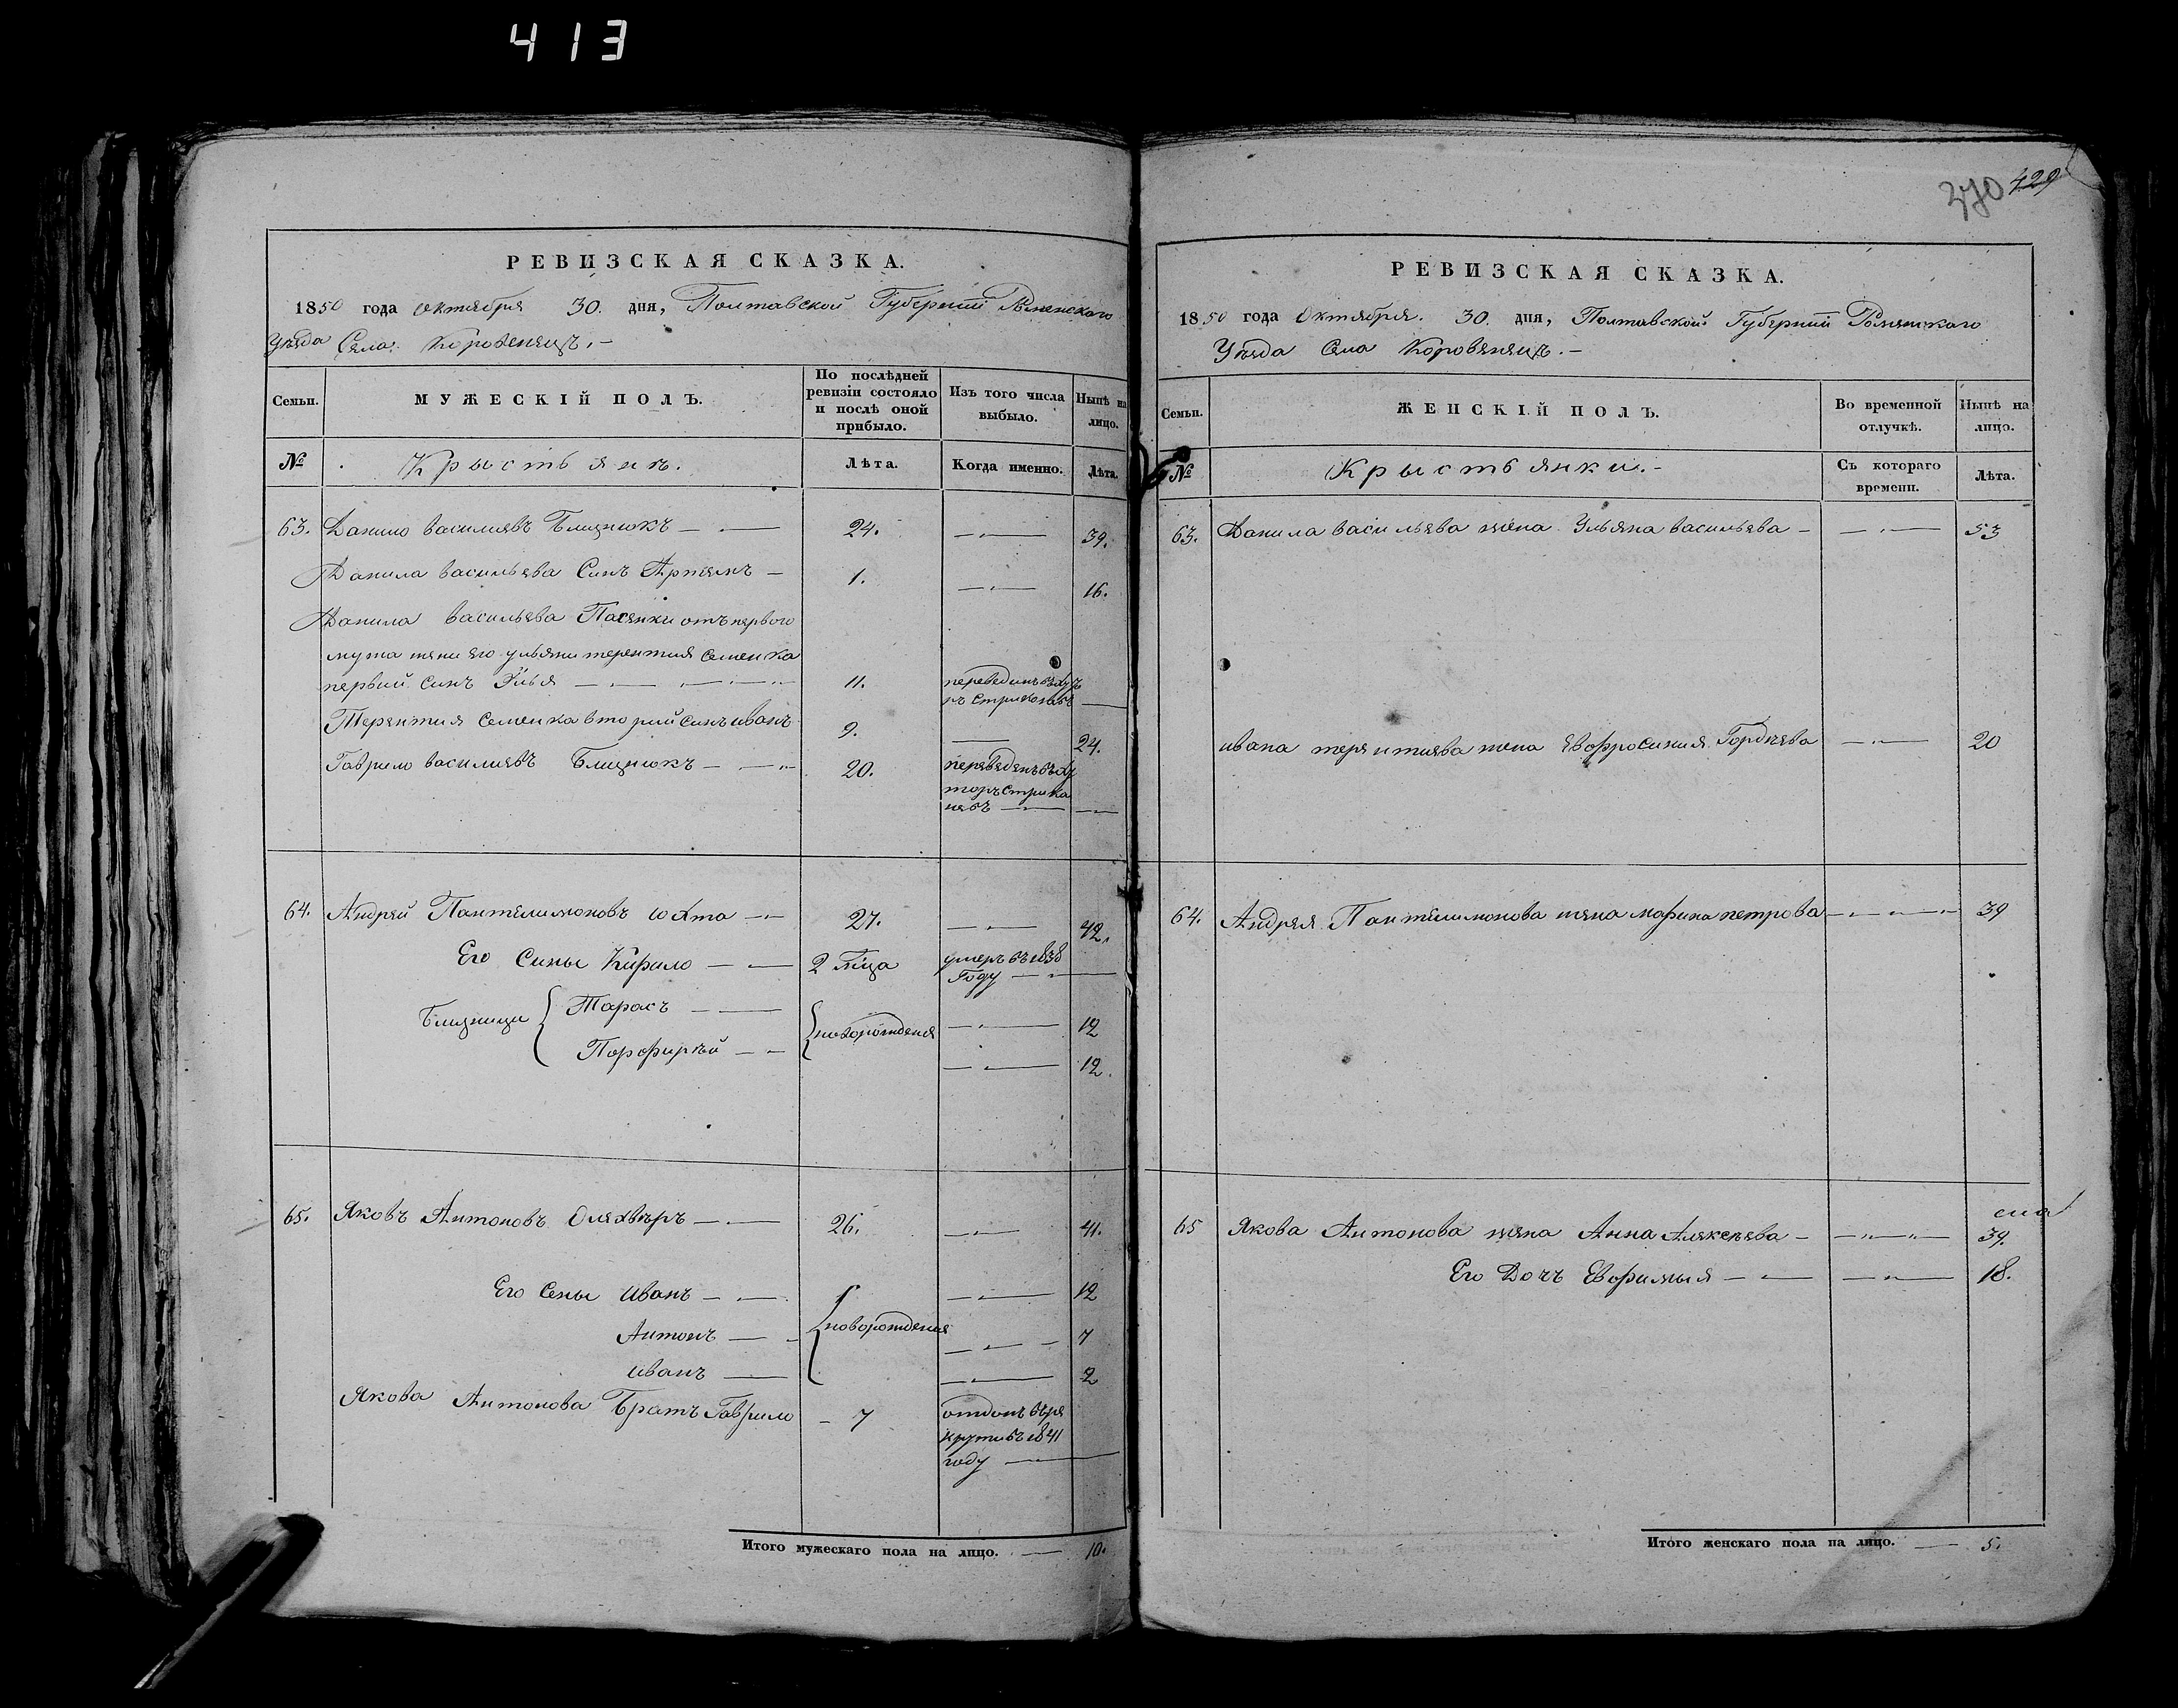 413
370 429
РЕВИЗСКАЯ СКАЗКА.
1850 года Октября 30. дня, Полтавской Губернии Роменского
Уѣзда Села Коровенецъ.-
Семьи.
МУЖЕСКІЙ ПОЛЪ.
По послѣдней ревизіи состояло и послѣ оной прибыло.
Изъ того числа выбыло.
Нынѣ на лицо.
№
Крыстьянъ.
Лѣта.
Когда именно.
Лѣта.
63. Данило василиевъ Близнюкъ 24. 39.
Данила васильева Синъ Артемъ 1. 16.
Данила васильева Пасенки отъ первого
мужа жени его ульяни терентия Семенка
первий синъ Илья 11. переведенъ въ хут
ръ Стрикоковъ
Терентия Семенка вторий синъ иванъ 9. 24.
Гаврило василиевъ Близнюкъ 20. переведенъ въ ху
торъ Стрика
невъ
64. Андрей Пантелимоновъ юхта 27. 42.
Его Сины Кирило 2 мца умеръ въ 1838
Году
Близници
Тарасъ новорожденя 12
Порфирѣй 12.
65. Яковъ Антоновъ Оляхвѣръ 26. 41.
Его Сены иванъ 12
Антонъ новорожденя 7
иванъ 2
Якова Антонова Братъ Гаврило 7 отданъ въ ре
круты въ 1841
году
Итого мужескаго пола на лицо. 10.
РЕВИЗСКАЯ СКАЗКА.
1850 года Октября. 30. дня, Полтавской Губернии Роменскаго
Уѣзда Села Коровенецъ.-
Семьи.
ЖЕНСКІЙ ПОЛЪ.
Во временной отлучкѣ.
Нынѣ на лицо.
№
Крыстьянки.-
Съ котораго времени.
Лѣта.
63. Данила васильева жена Ульяна васильева 53
ивана терентиева жена Евфросиния Гордѣева 20
64. Андрея Пантелимонова жена марина петрова 39
65 Якова Антонова жена Анна Алексѣева 39.
Его Дочъ Евфимыя 18.
Итого женскаго пола на лицо. 5.